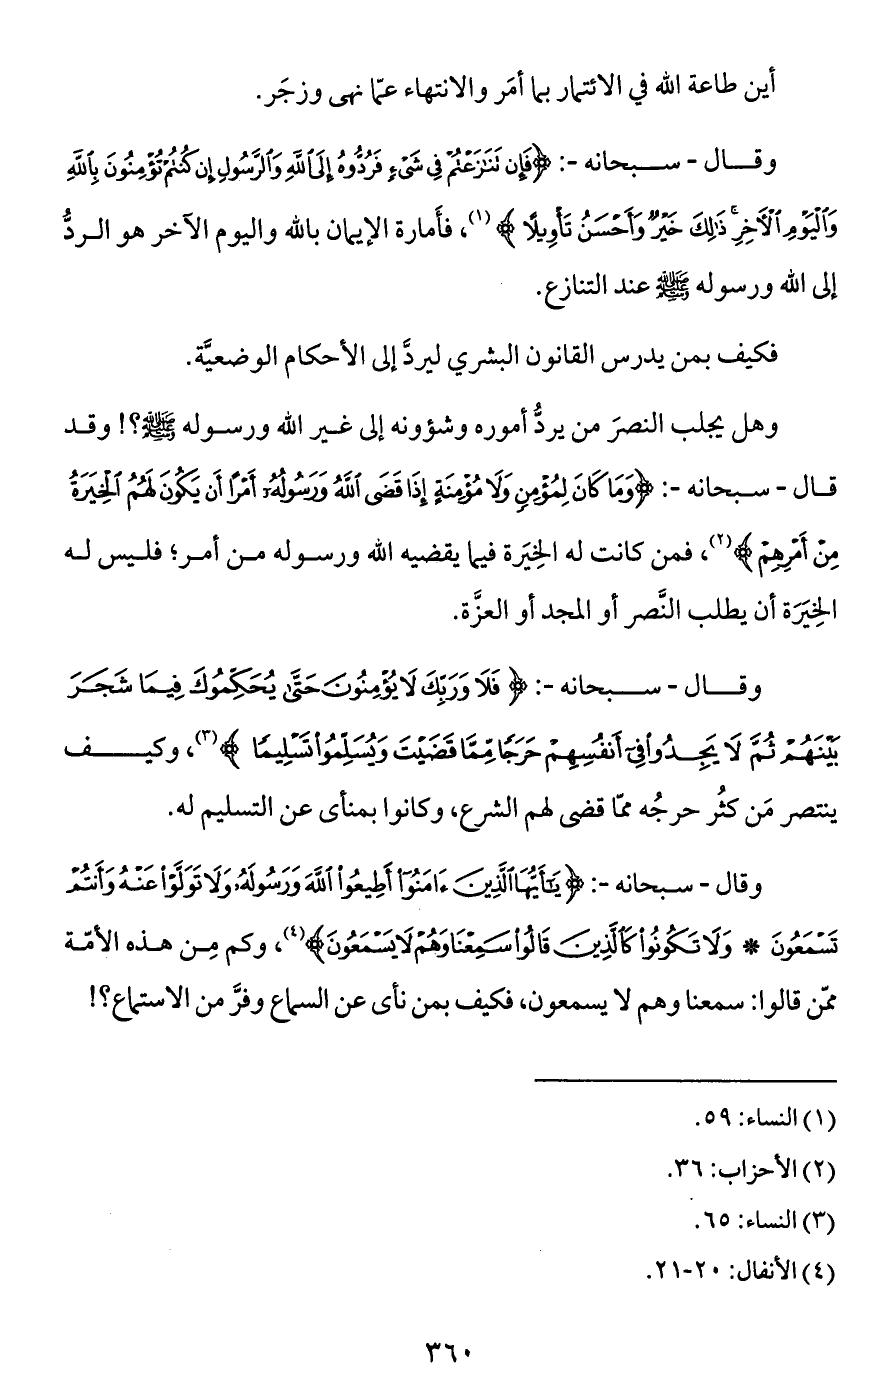 أين طاعة الله في الائتمار بما أمَر والانتهاء عمّا نهى وزجَر.
وقـــال - ســـبحانه -: ﴿فَإِن تَنَازَعْتُمْ فِي شَيْءٍ فَرُدُّوهُ إِلَى ٱللَّهِ وَٱلرَّسُولِ إِن كُنتُمْ تُؤْمِنُونَ بِٱللَّهِ
وَٱلْيَوْمِ ٱلْآخِرِ ۚ ذَٰلِكَ خَيْرٌ وَأَحْسَنُ تَأْوِيلًا ﴾(١)، فأَمارة الإيمان بالله واليوم الآخر هو الـردُّ
إلى الله ورسوله ﷺ عند التنازع.
فكيف بمن يدرس القانون البشري ليردَّ إلى الأحكام الوضعيَّة.
وهل يجلب النصرَ من يردُّ أموره وشؤونه إلى غـير الله ورسـوله ﷺ؟! وقـد
قـال - سـبحانه -: ﴿وَمَا كَانَ لِمُؤْمِنٍ وَلَا مُؤْمِنَةٍ إِذَا قَضَى ٱللَّهُ وَرَسُولُهُۥٓ أَمْرًا أَن يَكُونَ لَهُمُ ٱلْخِيَرَةُ
مِنْ أَمْرِهِمْ ﴾(٢)، فمن كانت له الخِيَرة فيما يقضيه الله ورسـوله مـن أمـر؛ فلـيس لـه
الخِيَرَة أن يطلب النَّصر أو المجد أو العزَّة.
وقـــال - ســـبحانه -: ﴿ فَلَا وَرَبِّكَ لَا يُؤْمِنُونَ حَتَّىٰ يُحَكِّمُوكَ فِيمَا شَجَرَ
بَيْنَهُمْ ثُمَّ لَا يَجِدُوا۟ فِىٓ أَنفُسِهِمْ حَرَجًا مِّمَّا قَضَيْتَ وَيُسَلِّمُوا۟ تَسْلِيمًا ﴾(٣)، وكيـــف
ينتصر مَن كثُر حرجُه ممّا قضى لهم الشرع، وكانوا بمنأى عن التسليم له.
وقال - سـبحانه -: ﴿يَٰٓأَيُّهَا ٱلَّذِينَ ءَامَنُوٓا۟ أَطِيعُوا۟ ٱللَّهَ وَرَسُولَهُۥ وَلَا تَوَلَّوْا۟ عَنْهُ وَأَنتُمْ
تَسْمَعُونَ * وَلَا تَكُونُوا۟ كَٱلَّذِينَ قَالُوا۟ سَمِعْنَا وَهُمْ لَا يَسْمَعُونَ﴾(٤)، وكم مِـن هـذه الأمّـة
ممّن قالوا: سمعنا وهم لا يسمعون، فكيف بمن نأى عن السماع وفرَّ من الاستماع؟!
(١) النساء: ٥٩.
(٢) الأحزاب: ٣٦.
(٣) النساء: ٦٥.
(٤) الأنفال: ٢٠-٢١.
٣٦٠